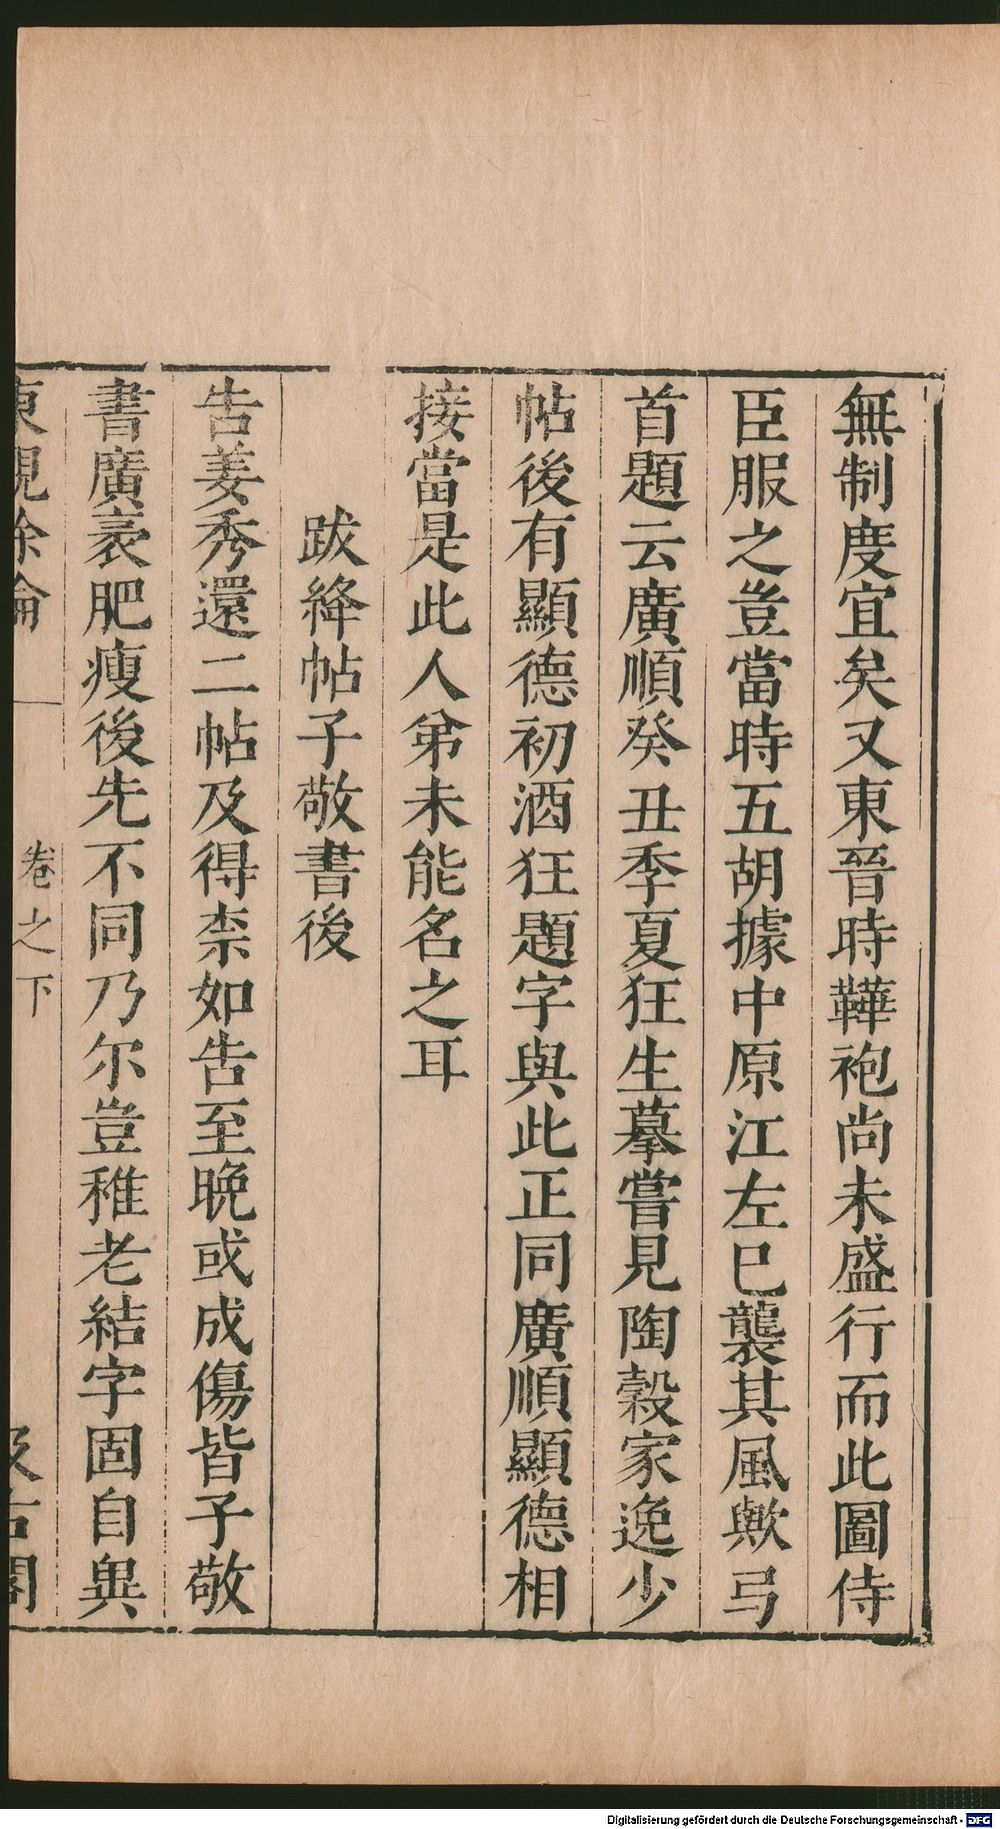 無制度宜矣又東晉時鞾袍尚未盛行而此圖侍
臣服之豈當時五胡據中原江左已襲其風歟弓
首題云廣順癸丑季夏狂生摹嘗見陶穀家逸少
帖後有顯德初酒狂題字與此正同廣順顯德相
接當是此人弟未能名之耳
跋絳帖子敬書後
告姜秀還二帖及得柰如告至晚或成傷皆子敬
書廣袤肥瘦後先不同乃尔豈稚老結字固自異
東觀餘論 卷之下 汲古閣
Digitalisierung gefördert durch die Deutsche Forschungsgemeinschaft - DFG